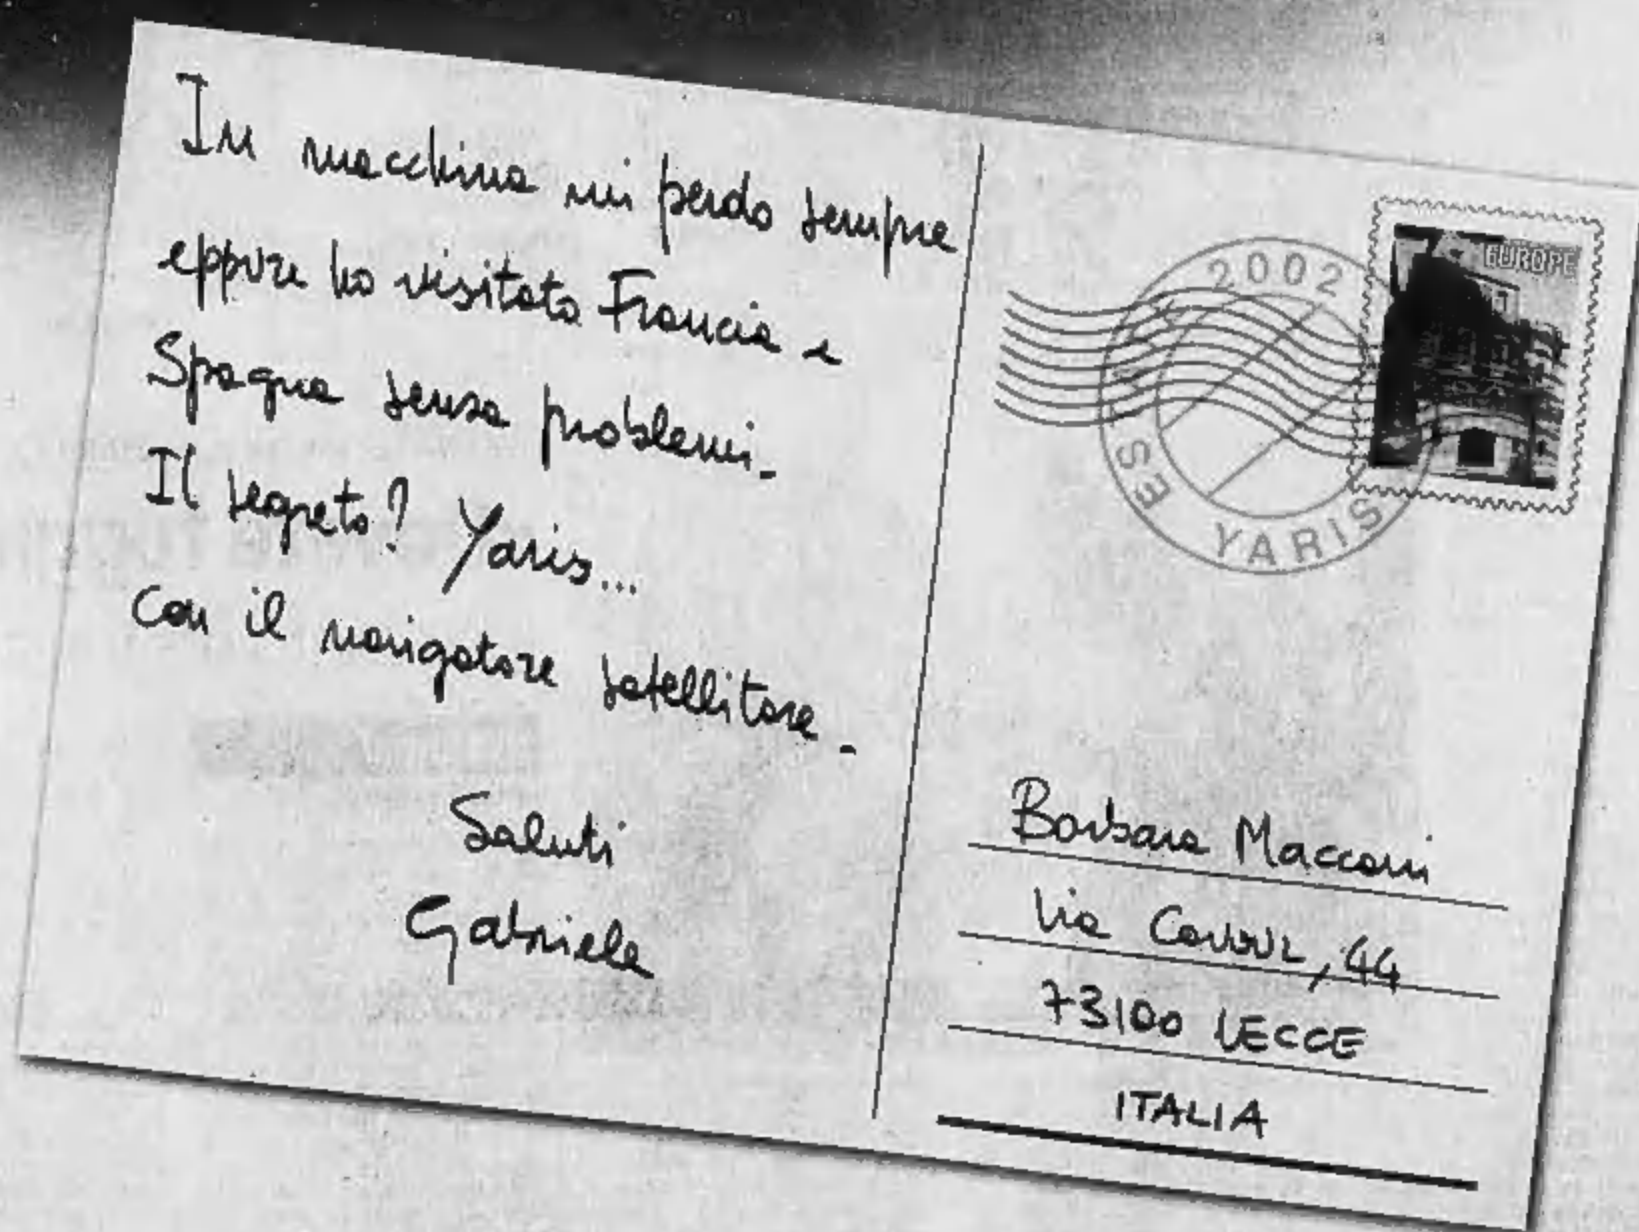 In macchina mi perdo sempre
eppure ho visitato Francia e
Spagna senza problemi.
Il segreto? Yaris...
con il navigatore satellitare.
Saluti
Gabriele
2002
YARIS
EUROPE
Barbara Macconi
Via Cavour, 44
73100 LECCE
ITALIA